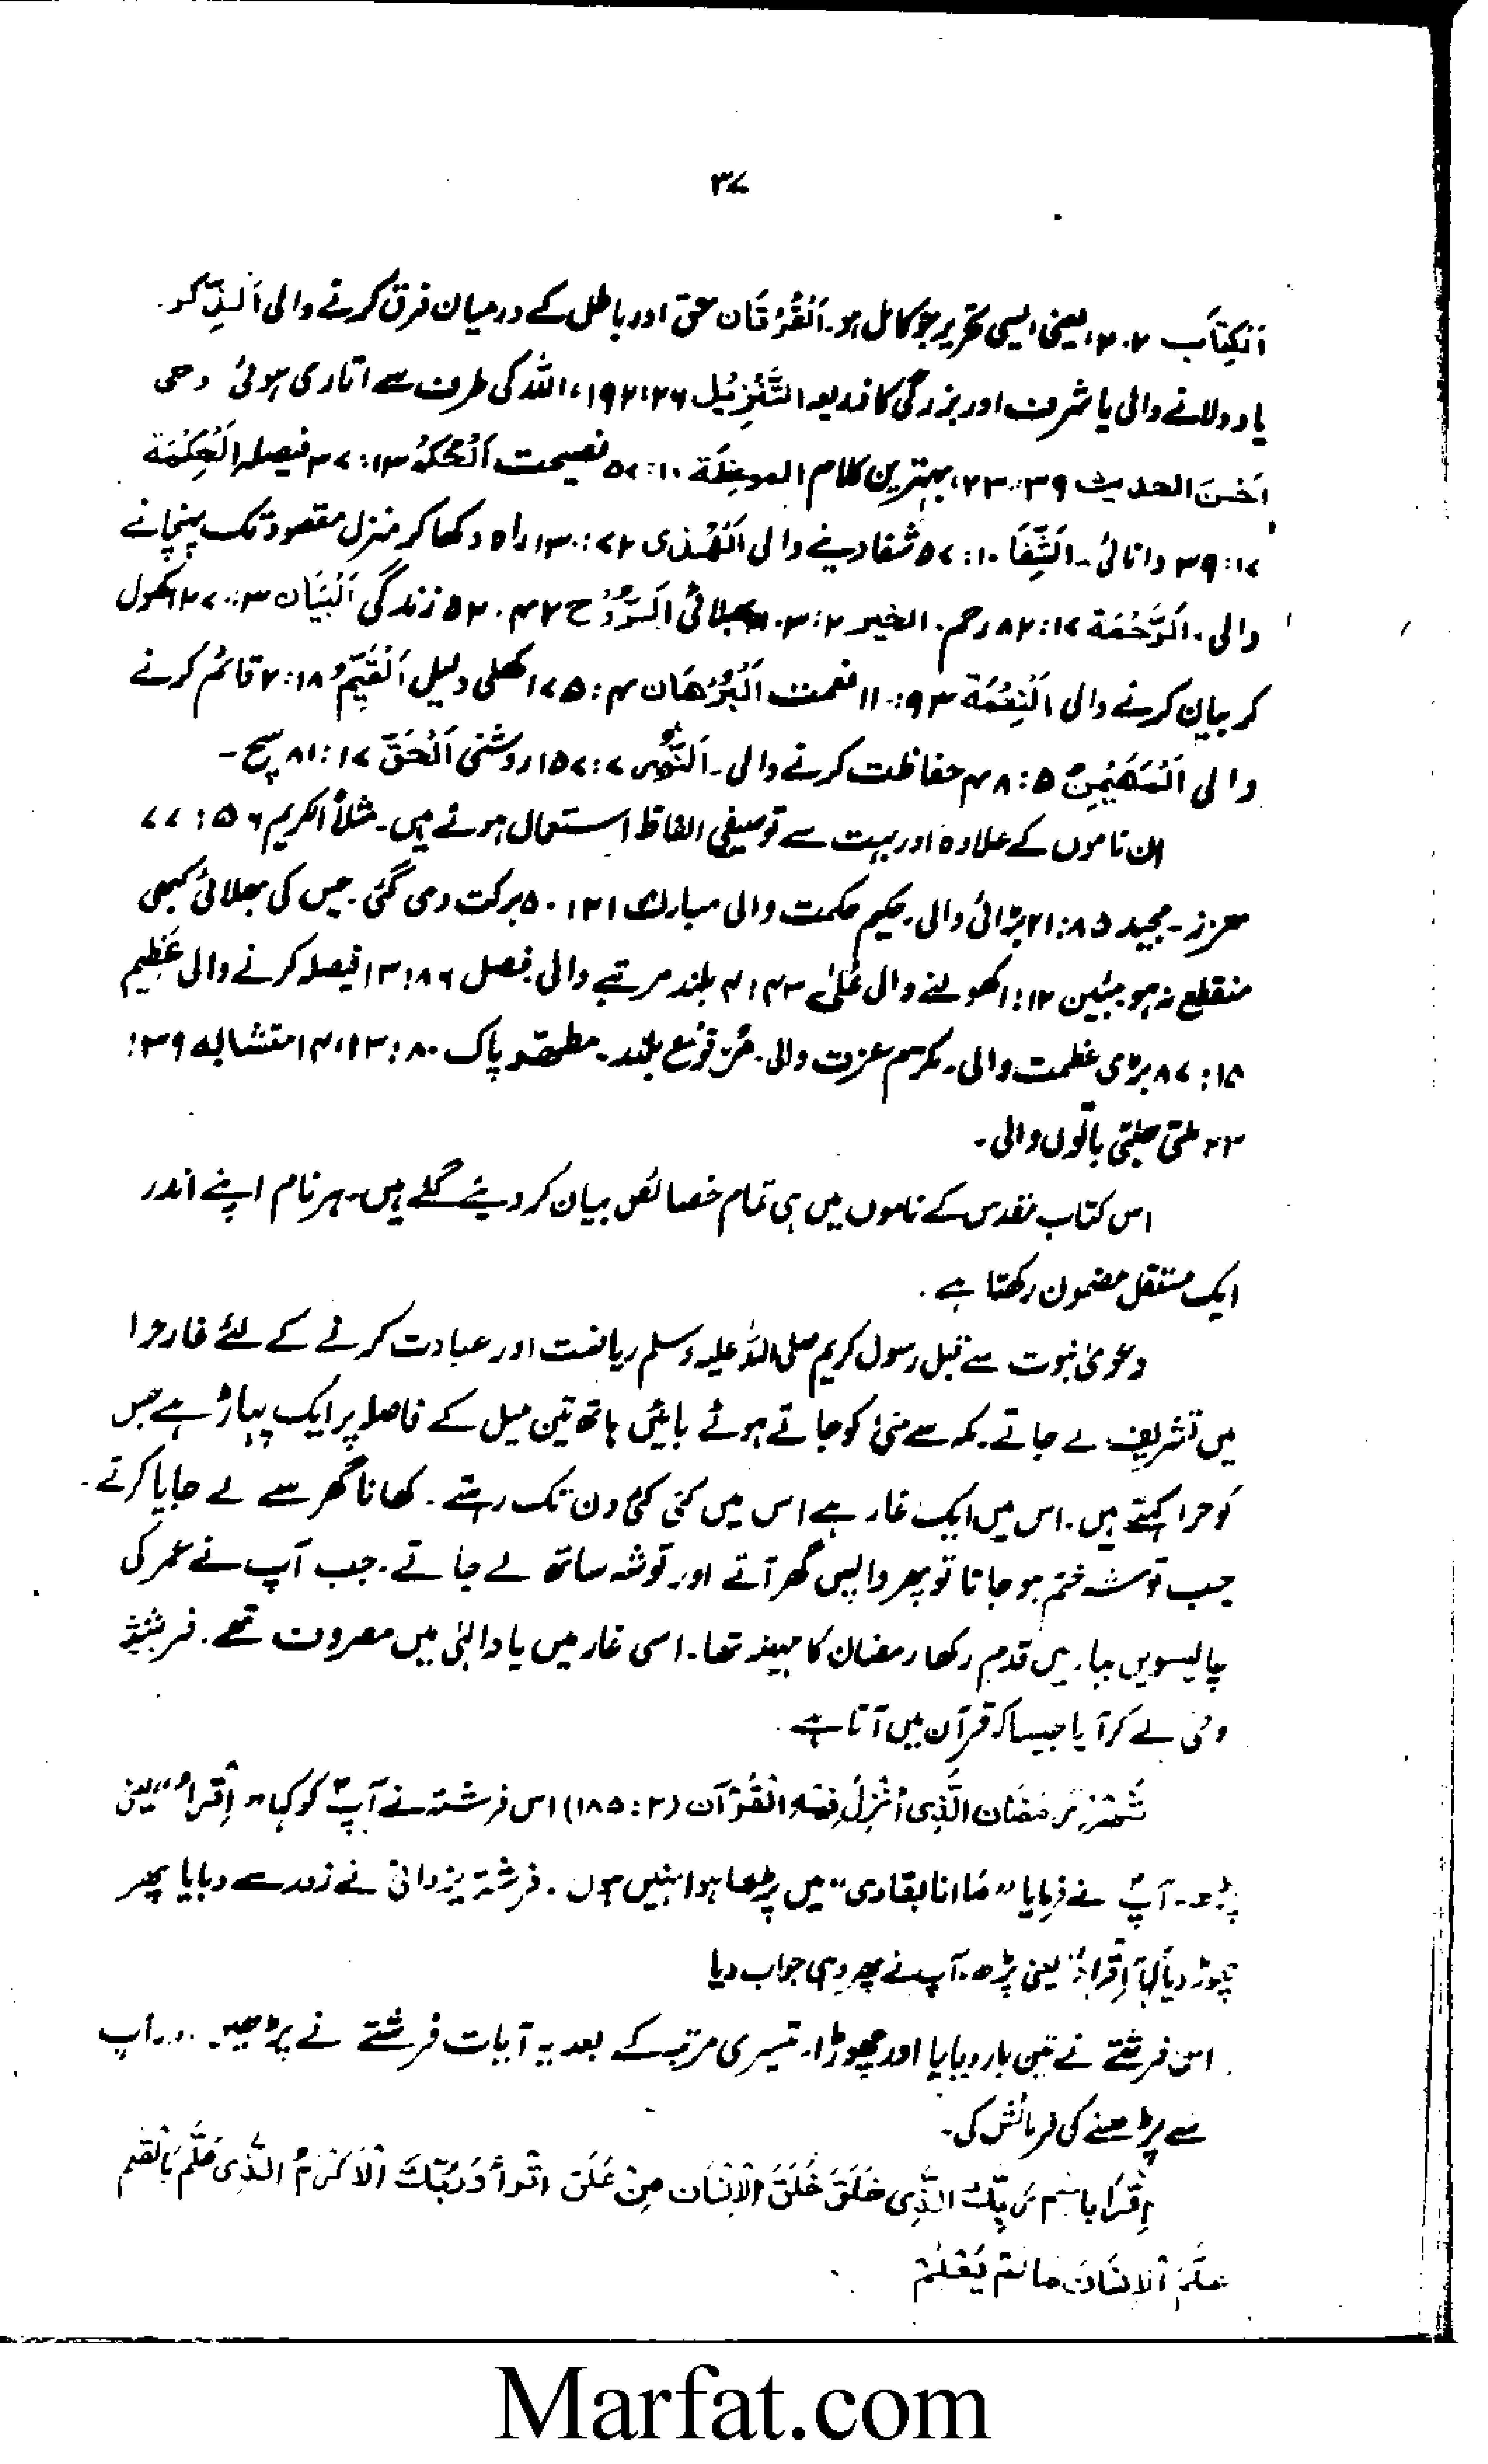 ۳۷
اَلْکِتَاب ۲:۲، یعنی ایسی تحریر جو کامل ہو۔ اَلْفُرْقَان حق اور باطل کے درمیان فرق کرنے والی اَلذِّکر۔
یاد دلانے والی یا شرف اور بزرگی کا ذریعہ التَّنْزِیْل ۱۹۲:۲۶، اللہ کی طرف سے اتاری ہوئی وحی
اَحْسَنَ الحدیث ۲۳:۳۹، بہترین کلام الموعِظَة ۵۷:۱۰ نصیحت اَلْحُکْمُ ۳۷:۱۳ فیصلہ اَلْحِکْمَة
۳۹:۱۷ دانائی۔ اَلشِّفَا ۵۷:۱۰ شفا دینے والی اَلْهُدٰی ۱۳:۷۲ راہ دکھا کر منزل مقصود تک پہنچانے
والی۔ اَلرَّحْمَة ۸۲:۱۷ رحم۔ الخیر ۳:۲۔ بھلائی اَلرُّوْح ۵۲:۴۲ زندگی اَلْبَیَان ۱۲۷:۳ کھول
کر بیان کرنے والی اَلنِّعْمَة ۱۱:۹۳ نعمت اَلْبُرْهَان ۱۷۵:۴ کھلی دلیل اَلْقَیِّمُ ۲:۱۸ قائم کرنے
والی اَلْمُهَیْمِنُ ۴۸:۵ حفاظت کرنے والی۔ اَلنُّوْر ۱۵۷:۷ روشنی اَلْحَقّ ۸۱:۱۷ سچ۔
ان ناموں کے علاوہ اور بہت سے توصیفی الفاظ استعمال ہوئے ہیں۔ مثلاً الکریم ۷۷:۵۶
معزز۔ مجید ۲۱:۸۵ بڑائی والی۔ حکیم حکمت والی مبارک ۵۰:۲۱ برکت دی گئی۔ جس کی بھلائی کبھی
منقطع نہ ہو۔ مبین ۱:۱۲ کھولنے والی عَلِیٌّ ۴:۴۳ بلند مرتبے والی۔ فصل ۱۳:۸۶ فیصلہ کرنے والی عَظِیم
۸۷:۱۵ بڑی عظمت والی۔ مکرّم عزت والی۔ مرفوع بلند۔ مطهّر پاک ۱۴،۱۳:۸۰ متشابه ۳۹:
۲۳ ملتی جلتی باتوں والی۔
اس کتاب مقدس کے ناموں میں ہی تمام خصائص بیان کر دیئے گئے ہیں۔ ہر نام اپنے اندر
ایک مستقل مضمون رکھتا ہے۔
دعویٰ نبوت سے قبل رسول کریم صلی اللہ علیہ وسلم ریاضت اور عبادت کرنے کے لئے غار حرا
میں تشریف لے جاتے۔ مکہ سے منیٰ کو جاتے ہوئے بائیں ہاتھ تین میل کے فاصلہ پر ایک پہاڑ ہے جس
کو حرا کہتے ہیں۔ اس میں ایک غار ہے اس میں کئی کئی دن تک رہتے۔ کھانا گھر سے لے جایا کرتے۔
جب توشہ ختم ہو جاتا تو پھر واپس گھر آتے اور توشہ ساتھ لے جاتے۔ جب آپ نے عمر کی
چالیسویں بہار میں قدم رکھا رمضان کا مہینہ تھا۔ اسی غار میں یاد الٰہی میں مصروف تھے۔ فرشتہ
وحی لے کر آیا جیسا کہ قرآن میں آتا ہے۔
شَهْرُ رَمَضَان الَّذِی اُنْزِلَ فِیْهِ الْقُرْآن (۱۸۵:۲) اس فرشتہ نے آپؐ کو کہا "اِقْرَاْ" یعنی
پڑھ۔ آپؐ نے فرمایا "مَا انا بقاری" میں پڑھا ہوا نہیں ہوں۔ فرشتہ یزدانی نے زور سے دبایا پھر
چھوڑ دیا کہا اِقْرَاْ یعنی پڑھ۔ آپ نے پھر وہی جواب دیا
اس فرشتے نے تین بار دبایا اور چھوڑا۔ تیسری مرتبہ کے بعد یہ آیات فرشتے نے پڑھیں اور آپ
سے پڑھنے کی فرمائش کی۔
اِقْرَا بِاسْمِ رَبِّكَ الَّذِی خَلَقَ خَلَقَ الْاِنْسَان مِنْ عَلَق اقْرأ وَرَبُّكَ الْاَکْرَمُ الَّذِی عَلَّمَ بِالْقَلَم
عَلَّمَ الْاِنْسَانَ مَا لَمْ یَعْلَمْ
Marfat.com